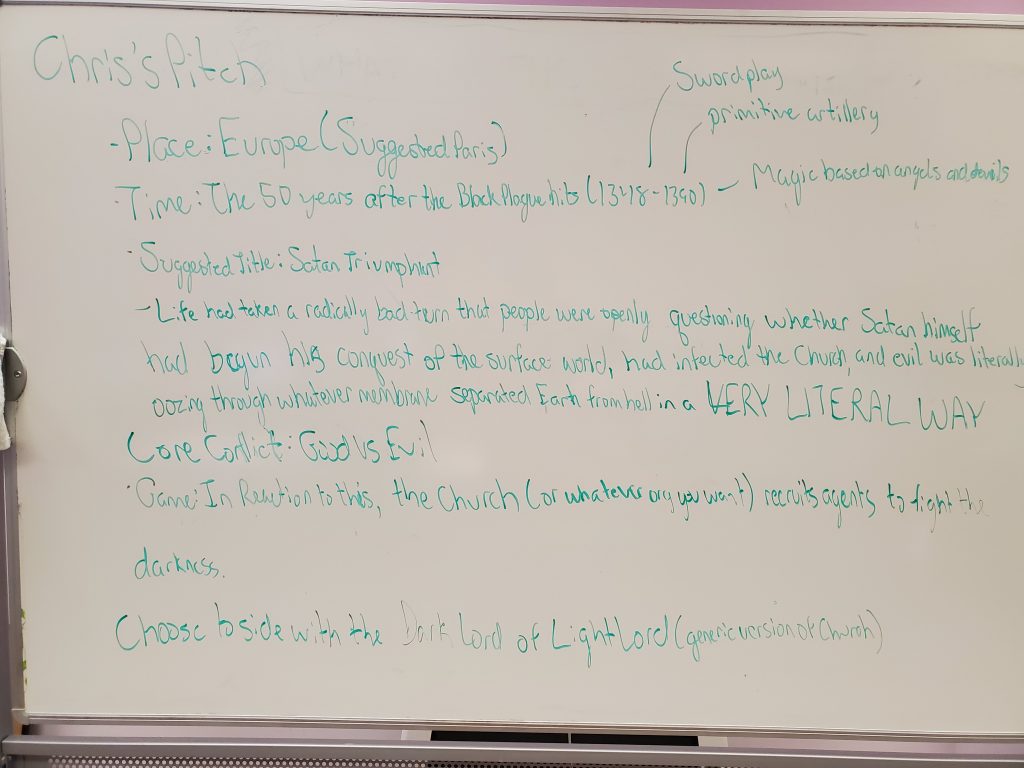 Chris's Pitch
Swordplay
primitive artillery
- Place: Europe (Suggested Paris)
- Time: The 50 years after the Black Plague hits (1348-1390) - Magic based on angels and devils
· Suggested Title: Satan Triumphant
- Life had taken a radically bad turn that people were openly questioning whether Satan himself
had begun his conquest of the surface world, had infected the Church, and evil was literally
oozing through whatever membrane separated Earth from hell in a VERY LITERAL WAY
Core Conflict: Good vs Evil
· Game: In Reaction to this, the Church (or whatever org you want) recruits agents to fight the
darkness.
Choose to side with the Dark Lord of Light Lord (generic version of Church)